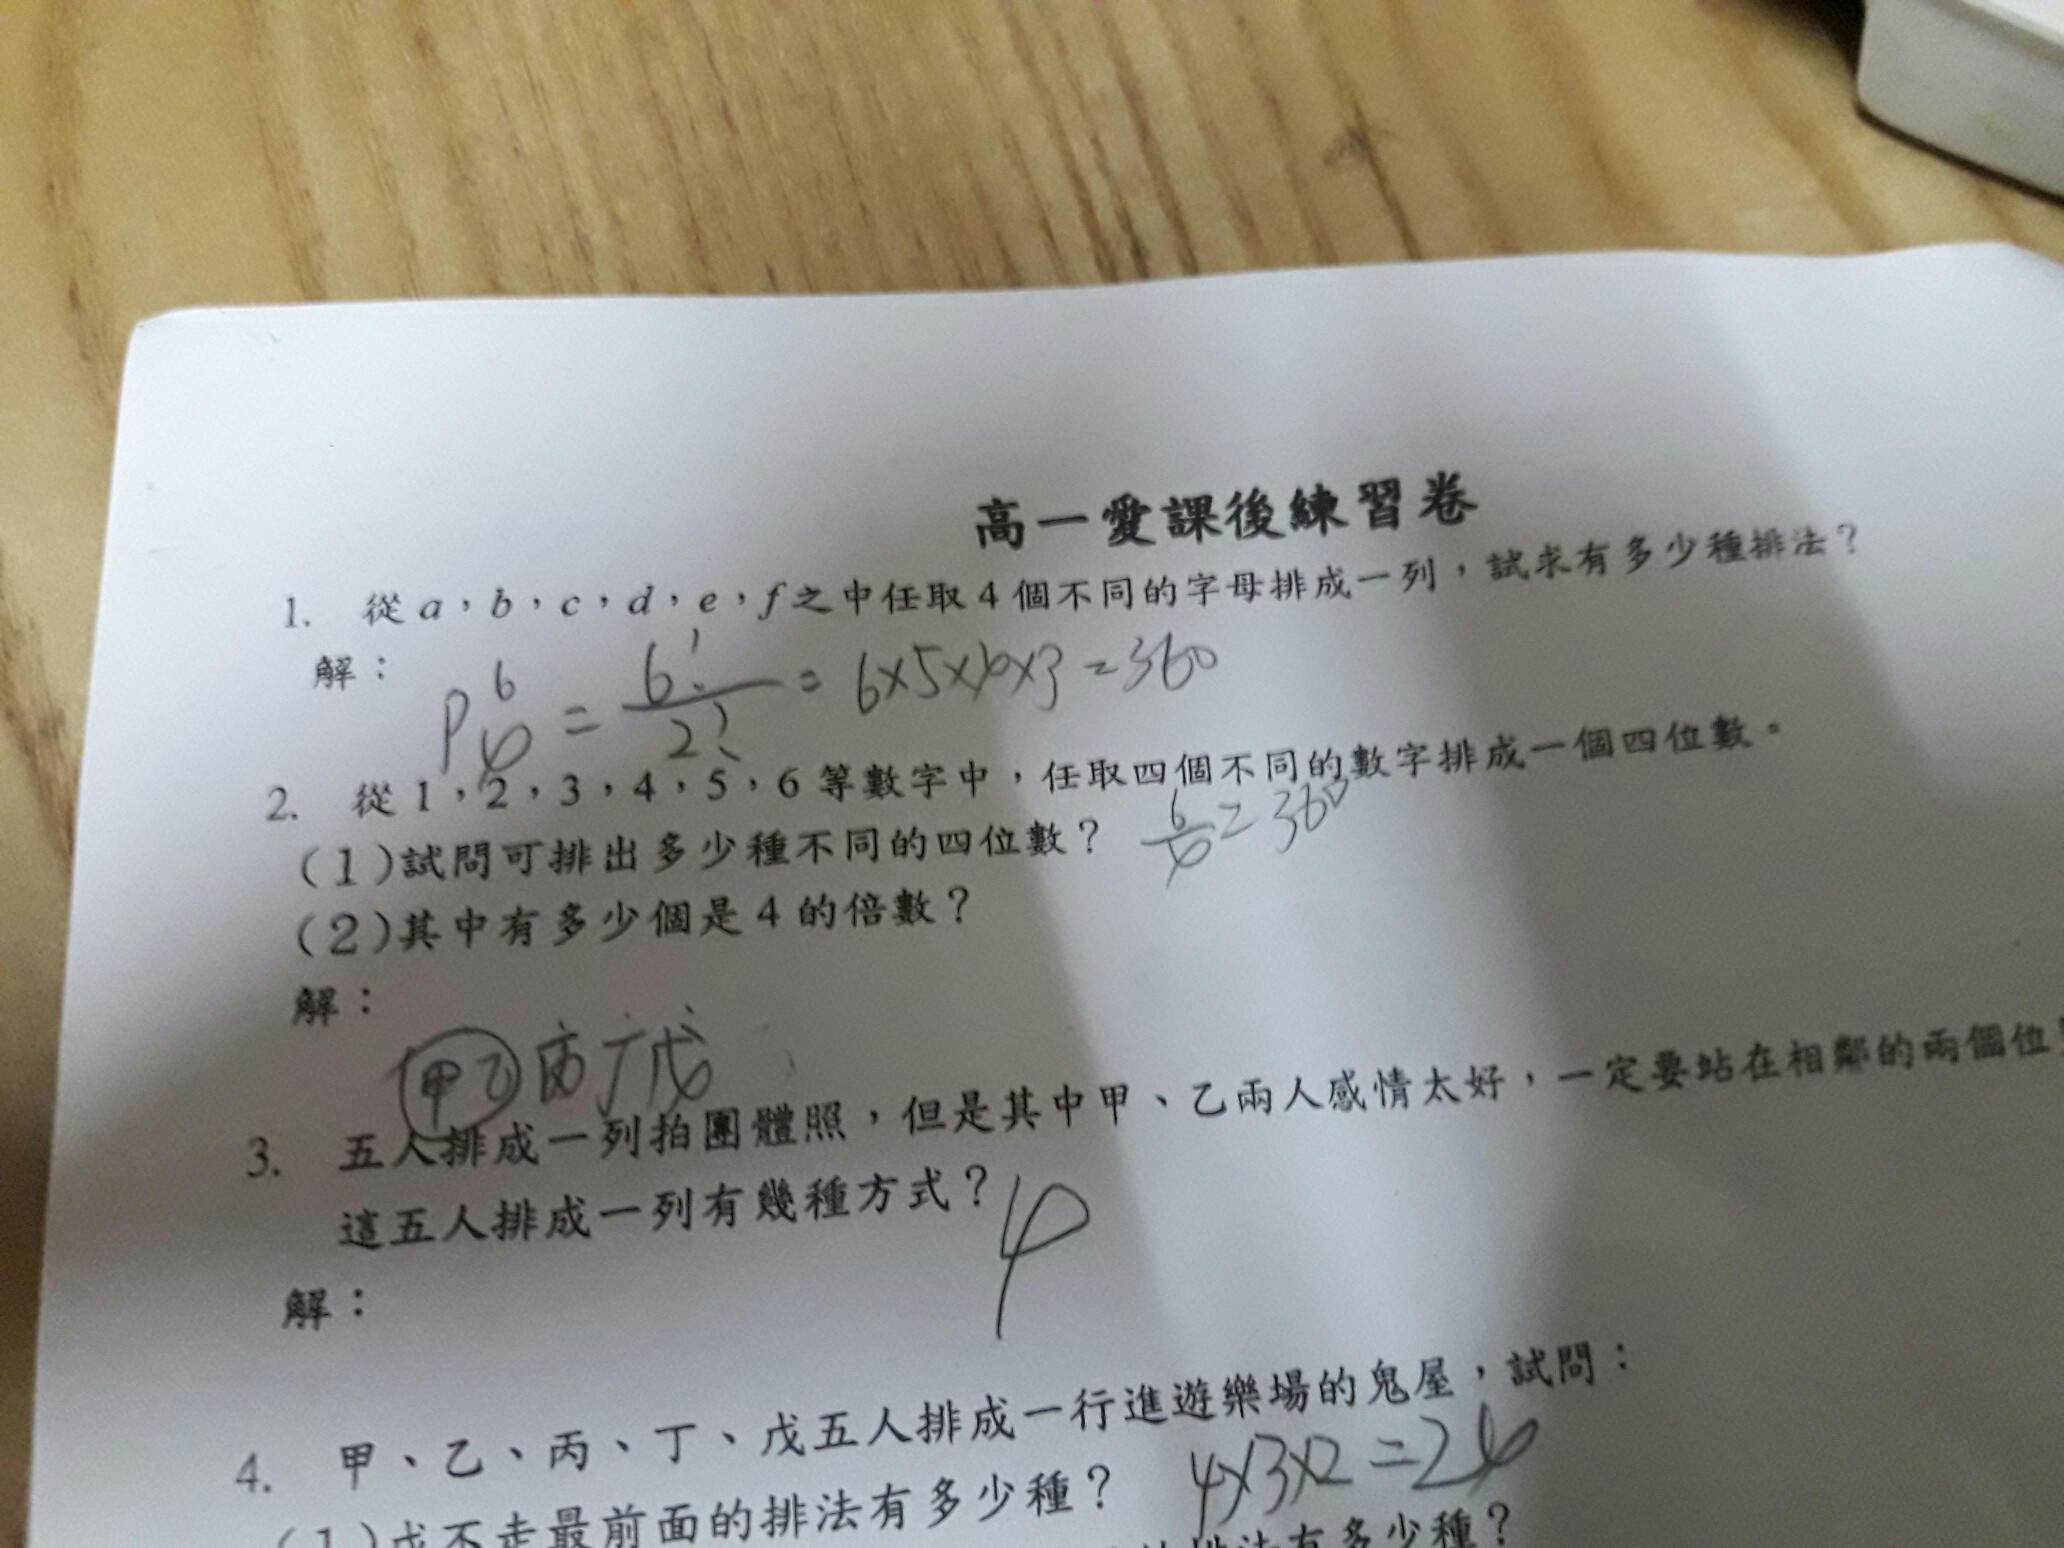 高一愛課後練習卷
1. 從 a，b，c，d，e，f 之中任取 4 個不同的字母排成一列，試求有多少種排法？
解：
P 6 4 = 6! / 2! = 6×5×4×3 = 360
2. 從 1，2，3，4，5，6 等數字中，任取四個不同的數字排成一個四位數。
(1)試問可排出多少種不同的四位數？ 6/4 = 360
(2)其中有多少個是 4 的倍數？
解：
甲乙丙丁戊
3. 五人排成一列拍團體照，但是其中甲、乙兩人感情太好，一定要站在相鄰的兩個位
這五人排成一列有幾種方式？ 4
解：
4. 甲、乙、丙、丁、戊五人排成一行進遊樂場的鬼屋，試問：
4×3×2=24
(1)戊不走最前面的排法有多少種？
排法有多少種？